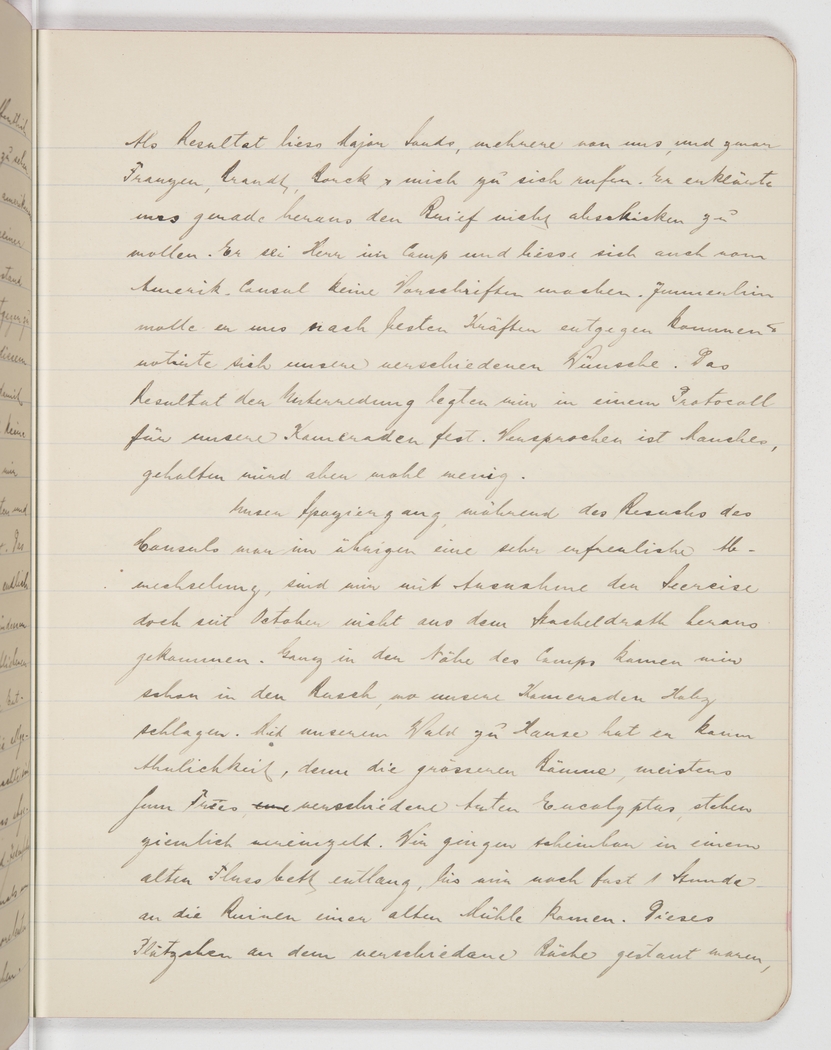 Als Resultat liess Major Sands, mehrere von uns, und zwar
Franzen, Brandt, Borck & mich zu sich rufen. Er erklärte
uns gerade heraus den Brief nicht abschicken zu
wollen. Er sei Herr im Camp und liesse sich auch vom
Amerik. Consul keine Vorschriften machen. Immerhin
wolle er uns nach besten Kräften entgegen kommen &
notirte sich unsere verschiedenen Wünsche. Das
Resultat der Unterredung legten wir in einem Protocoll
für unsere Kameraden fest. Versprochen ist Manches,
gehalten wird aber wohl wenig.
Unser Spaziergang während des Besuchs des
Consuls war im übrigen eine sehr erfreuliche Ab-
wechselung, sind wir mit Ausnahme der Seereise
doch seit October nicht aus dem Stacheldrath heraus
gekommen. Ganz in der Nähe des Camps kamen wir
schon in den Busch, wo unsere Kameraden Holz
schlagen. Mit unserem Wald zu Hause hat er kaum
Ähnlichkeit, denn die grösseren Bäume, meistens
Gum Trees, verschiedene Arten Eucalyptus, stehen
ziemlich vereinzelt. Wir gingen scheinbar in einem
alten Flussbett entlang, bis wir nach fast 1 Stunde
an die Ruinen einer alten Mühle kamen. Dieses
Plätzchen an dem verschiedene Bäche gestaut waren,